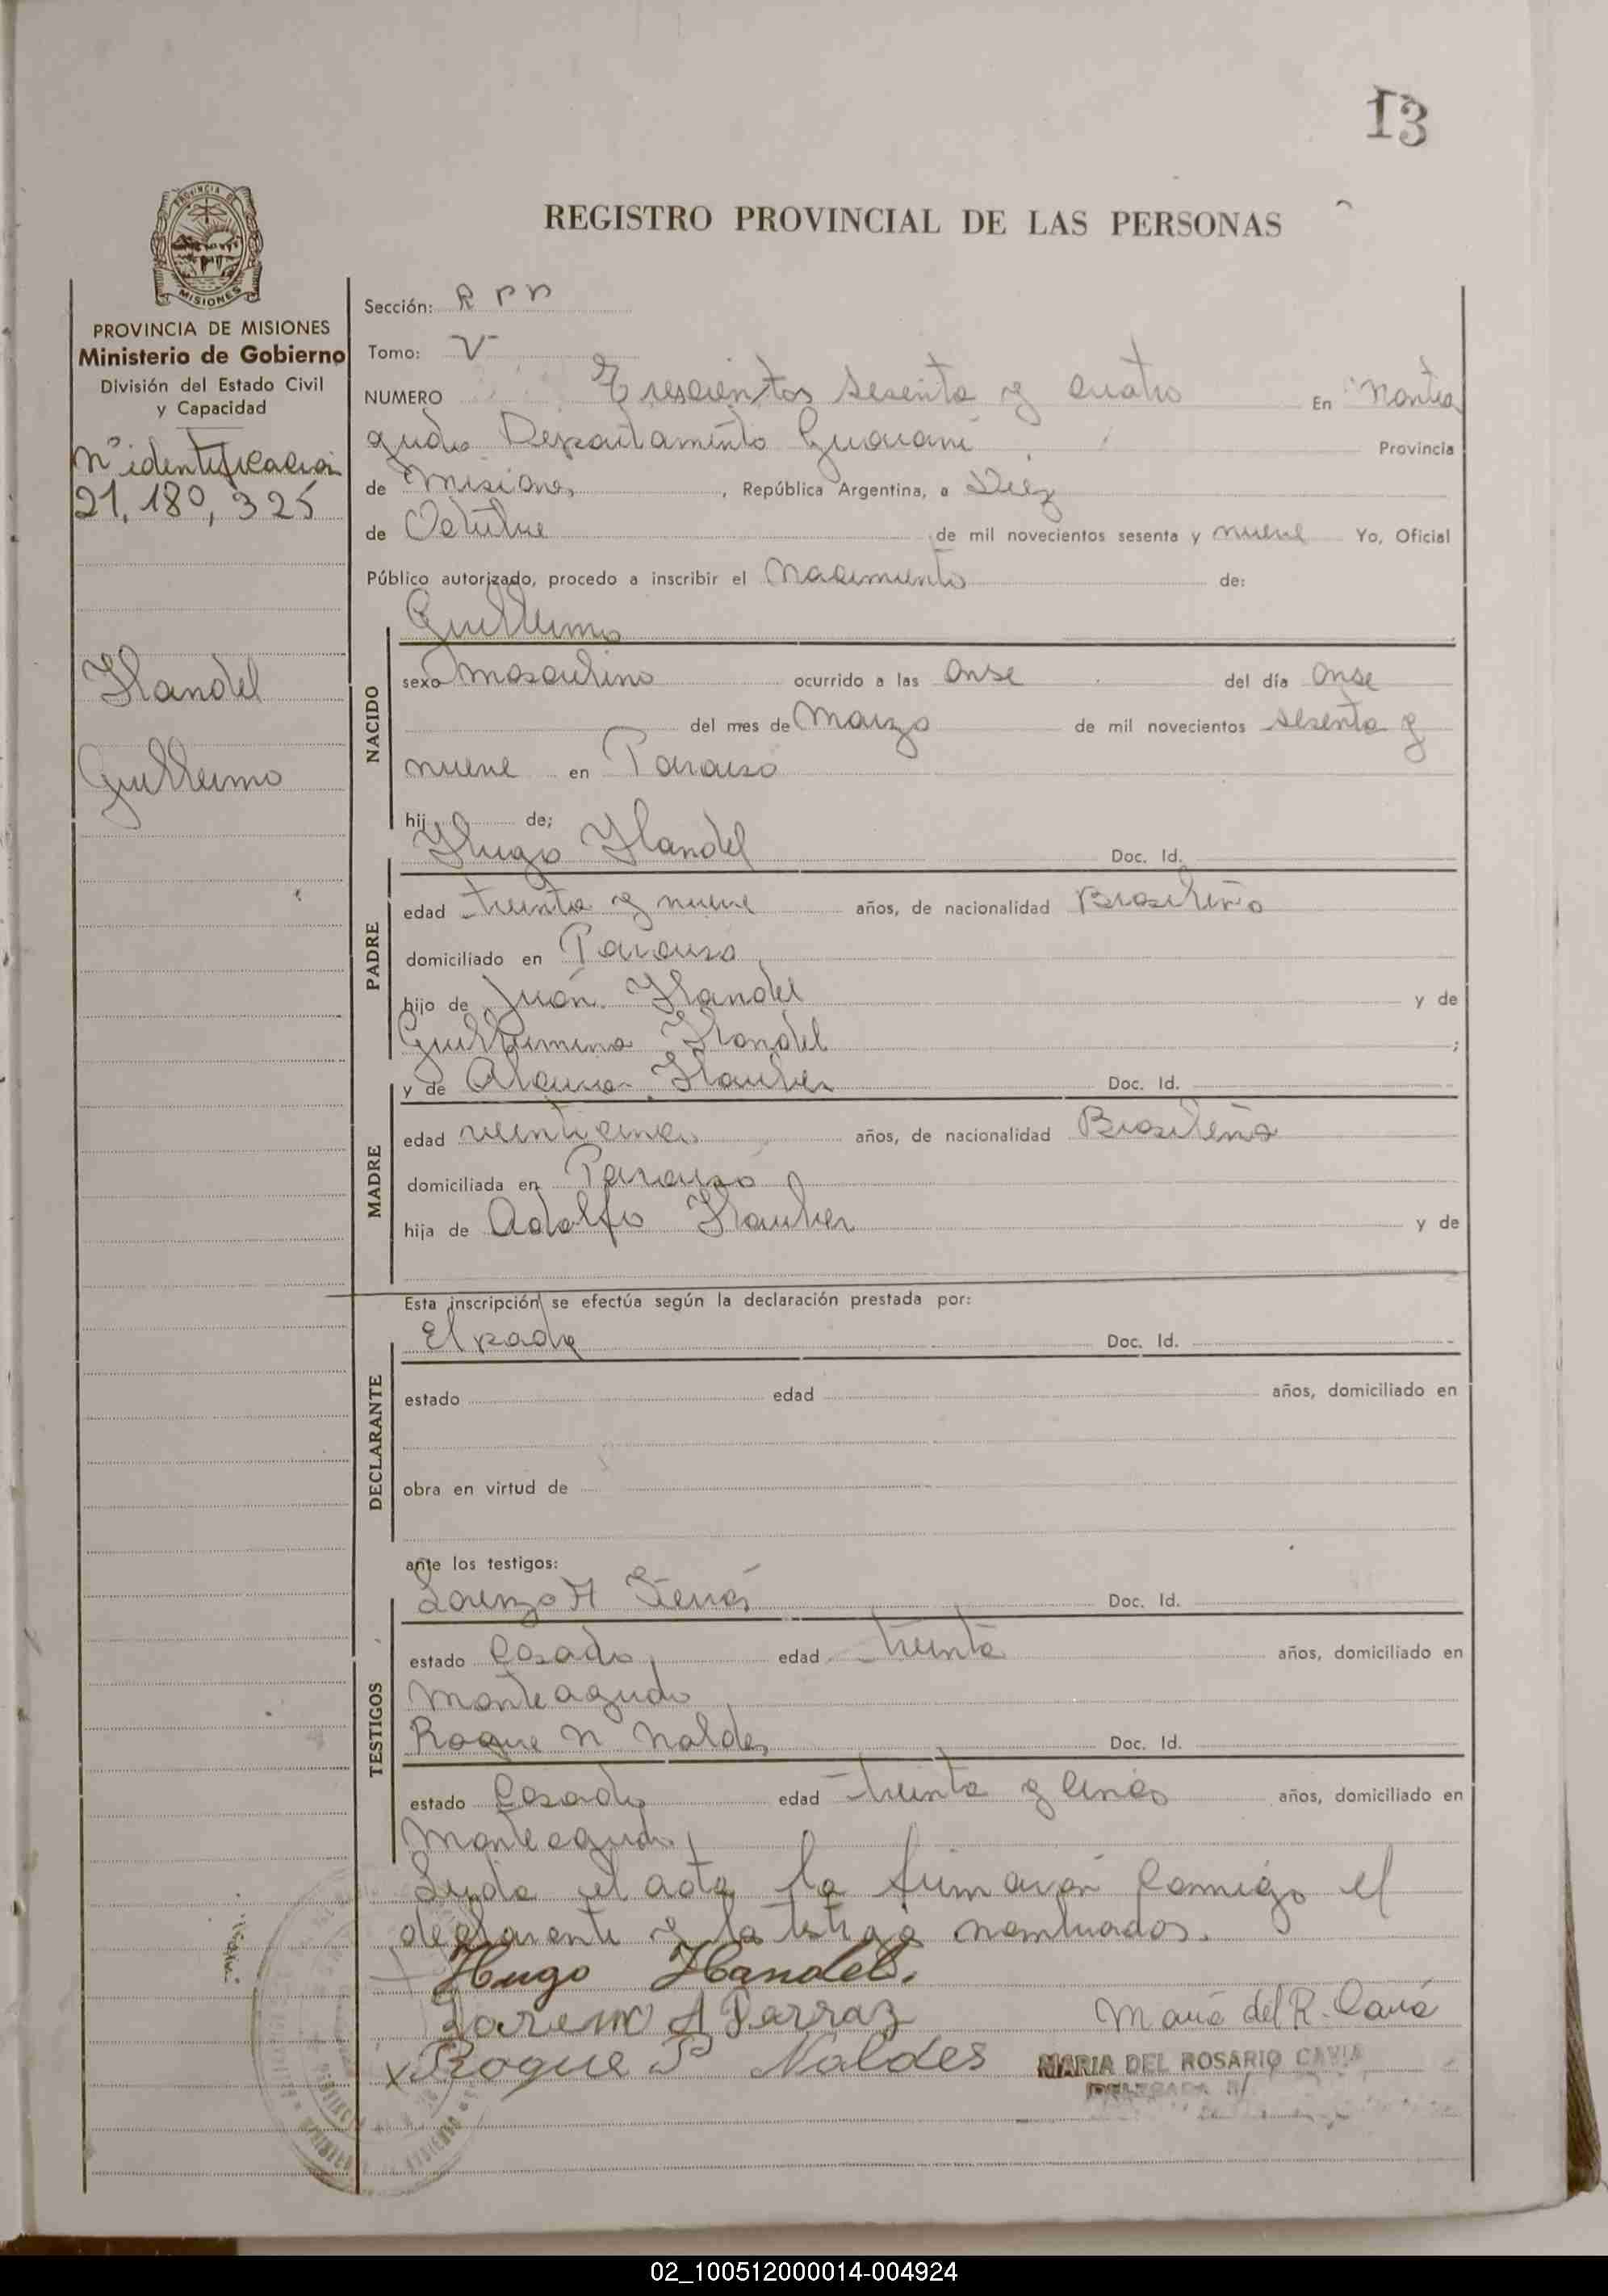 13
REGISTRO PROVINCIAL DE LAS PERSONAS
PROVINCIA DE
MISIONES
PROVINCIA DE MISIONES
Ministerio de Gobierno
División del Estado Civil
y Capacidad
Nº identificacion
21.180,325
Handel
Guillermo
Sección: R P P
Tomo: V
NUMERO Trescientos sesenta y cuatro En Montea
gudo Departamento Guaraní Provincia
de Misiones, República Argentina, a Diez
de Octubre de mil novecientos sesenta y nueve Yo, Oficial
Público autorizado, procedo a inscribir el Nacimiento de:
Guillermo
NACIDO
sexo Masculino ocurrido a las onse del día onse
del mes de Marzo de mil novecientos sesenta y
nueve en Paraiso
hij o de;
Hugo Handel Doc. Id.
PADRE
edad treinta y nueve años, de nacionalidad Brasileño
domiciliado en Paraiso
hijo de Juan Handel y de
Guillermina Handel ;
y de Hauber Doc. Id.
MADRE
edad veinticinco años, de nacionalidad Brasileña
domiciliada en Paraiso
hija de Adolfo Hauber y de
Esta inscripción se efectúa según la declaración prestada por:
El padre Doc. Id.
DECLARANTE
estado edad años, domiciliado en
obra en virtud de
ante los testigos:
Lorenzo A Doc. Id.
TESTIGOS
estado Casado, edad treinta años, domiciliado en
Monteagudo
Roque N Naldes Doc. Id.
estado Casado edad treinta y cinco años, domiciliado en
Monteagudo,
Leida el acta la firmaron conmigo el
declarante y los testigos nombrados.
Hugo Handel.
A Ferraz María del R. Caviá
x Roque P Naldes MARIA DEL ROSARIO CAVIA
DELEGADA
02_100512000014-004924